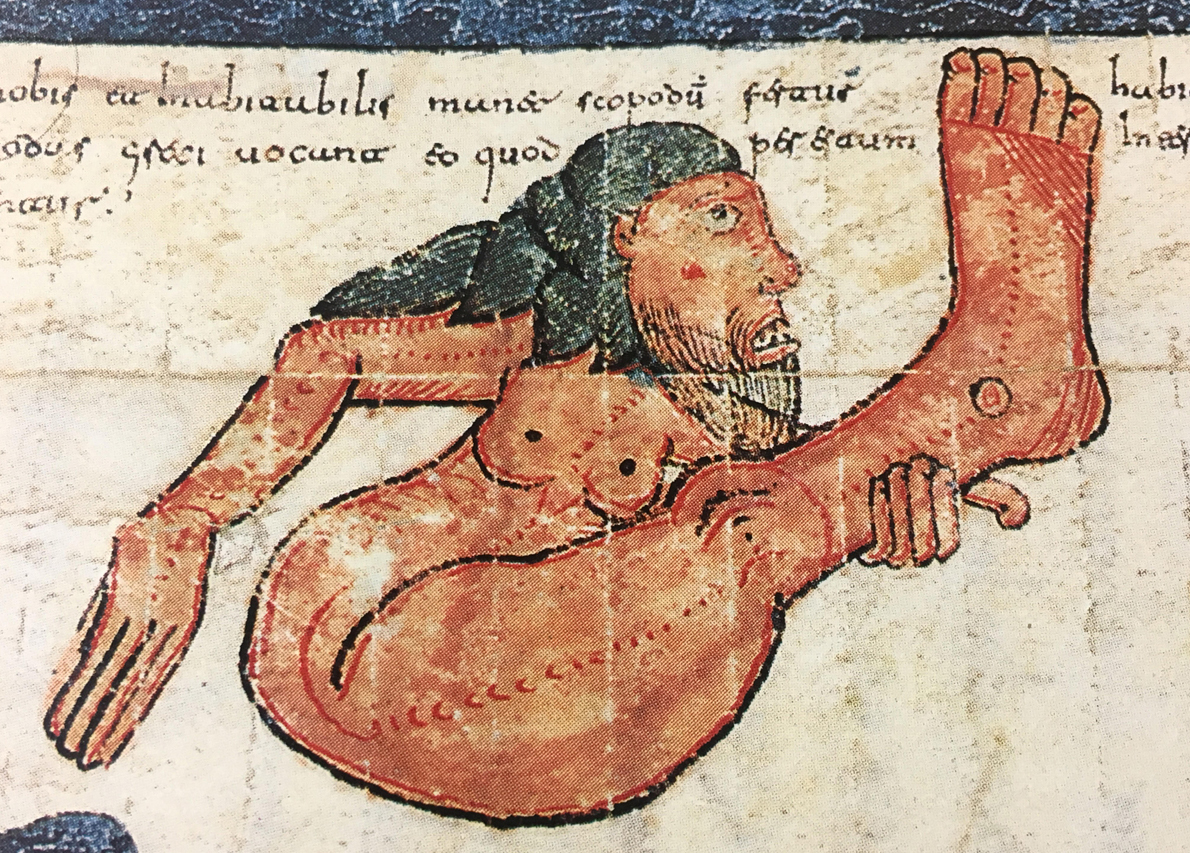 nobis et inhabitabilis manet scopodū fertur habi
odus greci uocant eo quod per estum